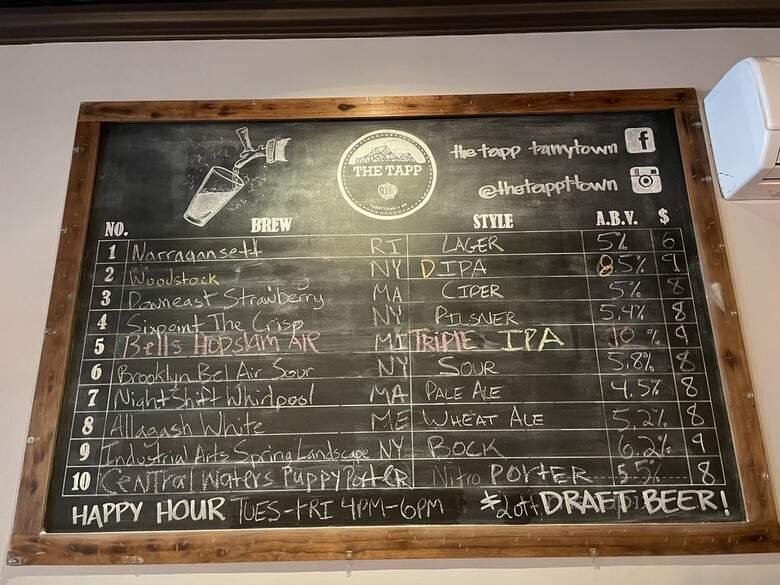 THE TAPP
TARRYTOWN, NY
the tapp tarrytown f
@thetappttown
NO. BREW STYLE A.B.V. $
1 Narragansett RI LAGER 5% 6
2 Woodstock NY DIPA 8.5% 9
3 Downeast Strawberry MA CIDER 5% 8
4 Sixpoint The Crisp NY PILSNER 5.4% 8
5 Bells Hopslam AIR MI TRIPLE IPA 10 % 9
6 Brooklyn Bel Air Sour NY SOUR 5.8% 8
7 Night Shift Whirlpool MA PALE ALE 4.5% 8
8 Allagash White ME WHEAT ALE 5.2% 8
9 Industrial Arts Spring Landscape NY BOCK 6.2% 9
10 CENTRAL WATERS PUPPY PORTER Nitro PORTER 5.5% 8
HAPPY HOUR TUES-FRI 4PM-6PM *2 off DRAFT BEER!